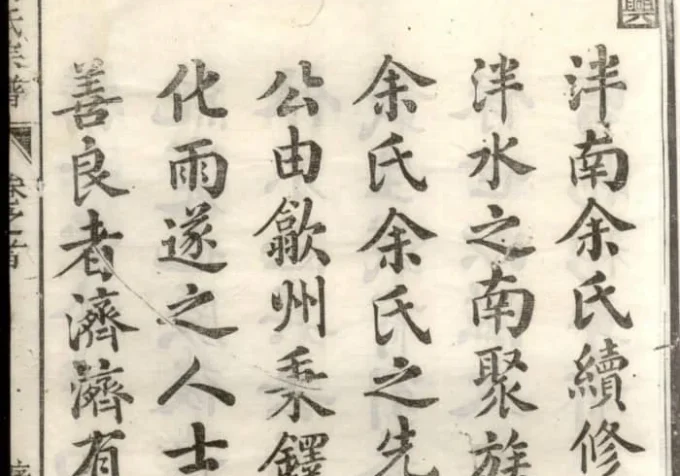 泮南余氏續修
泮水之南聚族
余氏余氏之先
公由歙州秉鐸
化雨遂之人士
善良者濟濟有
氏宗譜
卷之首
序